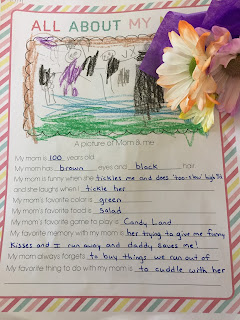 ALL ABOUT MY
A picture of Mom & me
My mom is 100 years old
My mom has brown eyes and black hair
My mom is funny when she tickles me and does 'too-show' high
and she laughs when I tickle her
My mom's favorite color is green
My mom's favorite food is salad
My mom's favorite game to play is Candy Land
My favorite memory with my mom is her trying to give me funny
kisses and I run away and daddy saves me!
My mom always forgets to buy things we run out of
My favorite thing to do with my mom is to cuddle with her